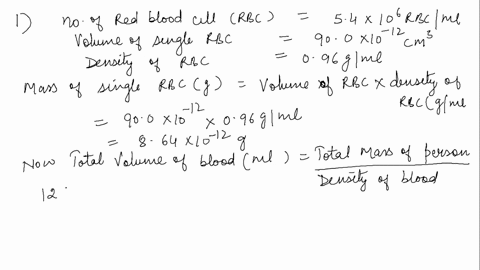 1) no. of Red blood cell (RBC) = 5.4 × 10⁶ RBC/ml
Volume of single RBC = 90.0 × 10⁻¹² cm³
Density of RBC = 0.96 g/ml
Mass of single RBC (g) = Volume of RBC × density of RBC (g/ml
= 90.0 × 10⁻¹² × 0.96 g/ml
= 8.64 × 10⁻¹² g
Now Total Volume of blood (ml) = Total Mass of person / Density of blood
12